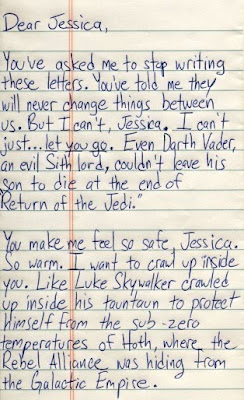 Dear Jessica,
You've asked me to stop writing
these letters. You've told me they
will never change things between
us. But I can't, Jessica. I can't
just...let you go. Even Darth Vader,
an evil Sith lord, couldn't leave his
son to die at the end of
"Return of the Jedi."
You make me feel so safe, Jessica.
So warm. I want to crawl up inside
you. Like Luke Skywalker crawled
up inside his tauntaun to protect
himself from the sub-zero
temperatures of Hoth, where the
Rebel Alliance was hiding from
the Galactic Empire.